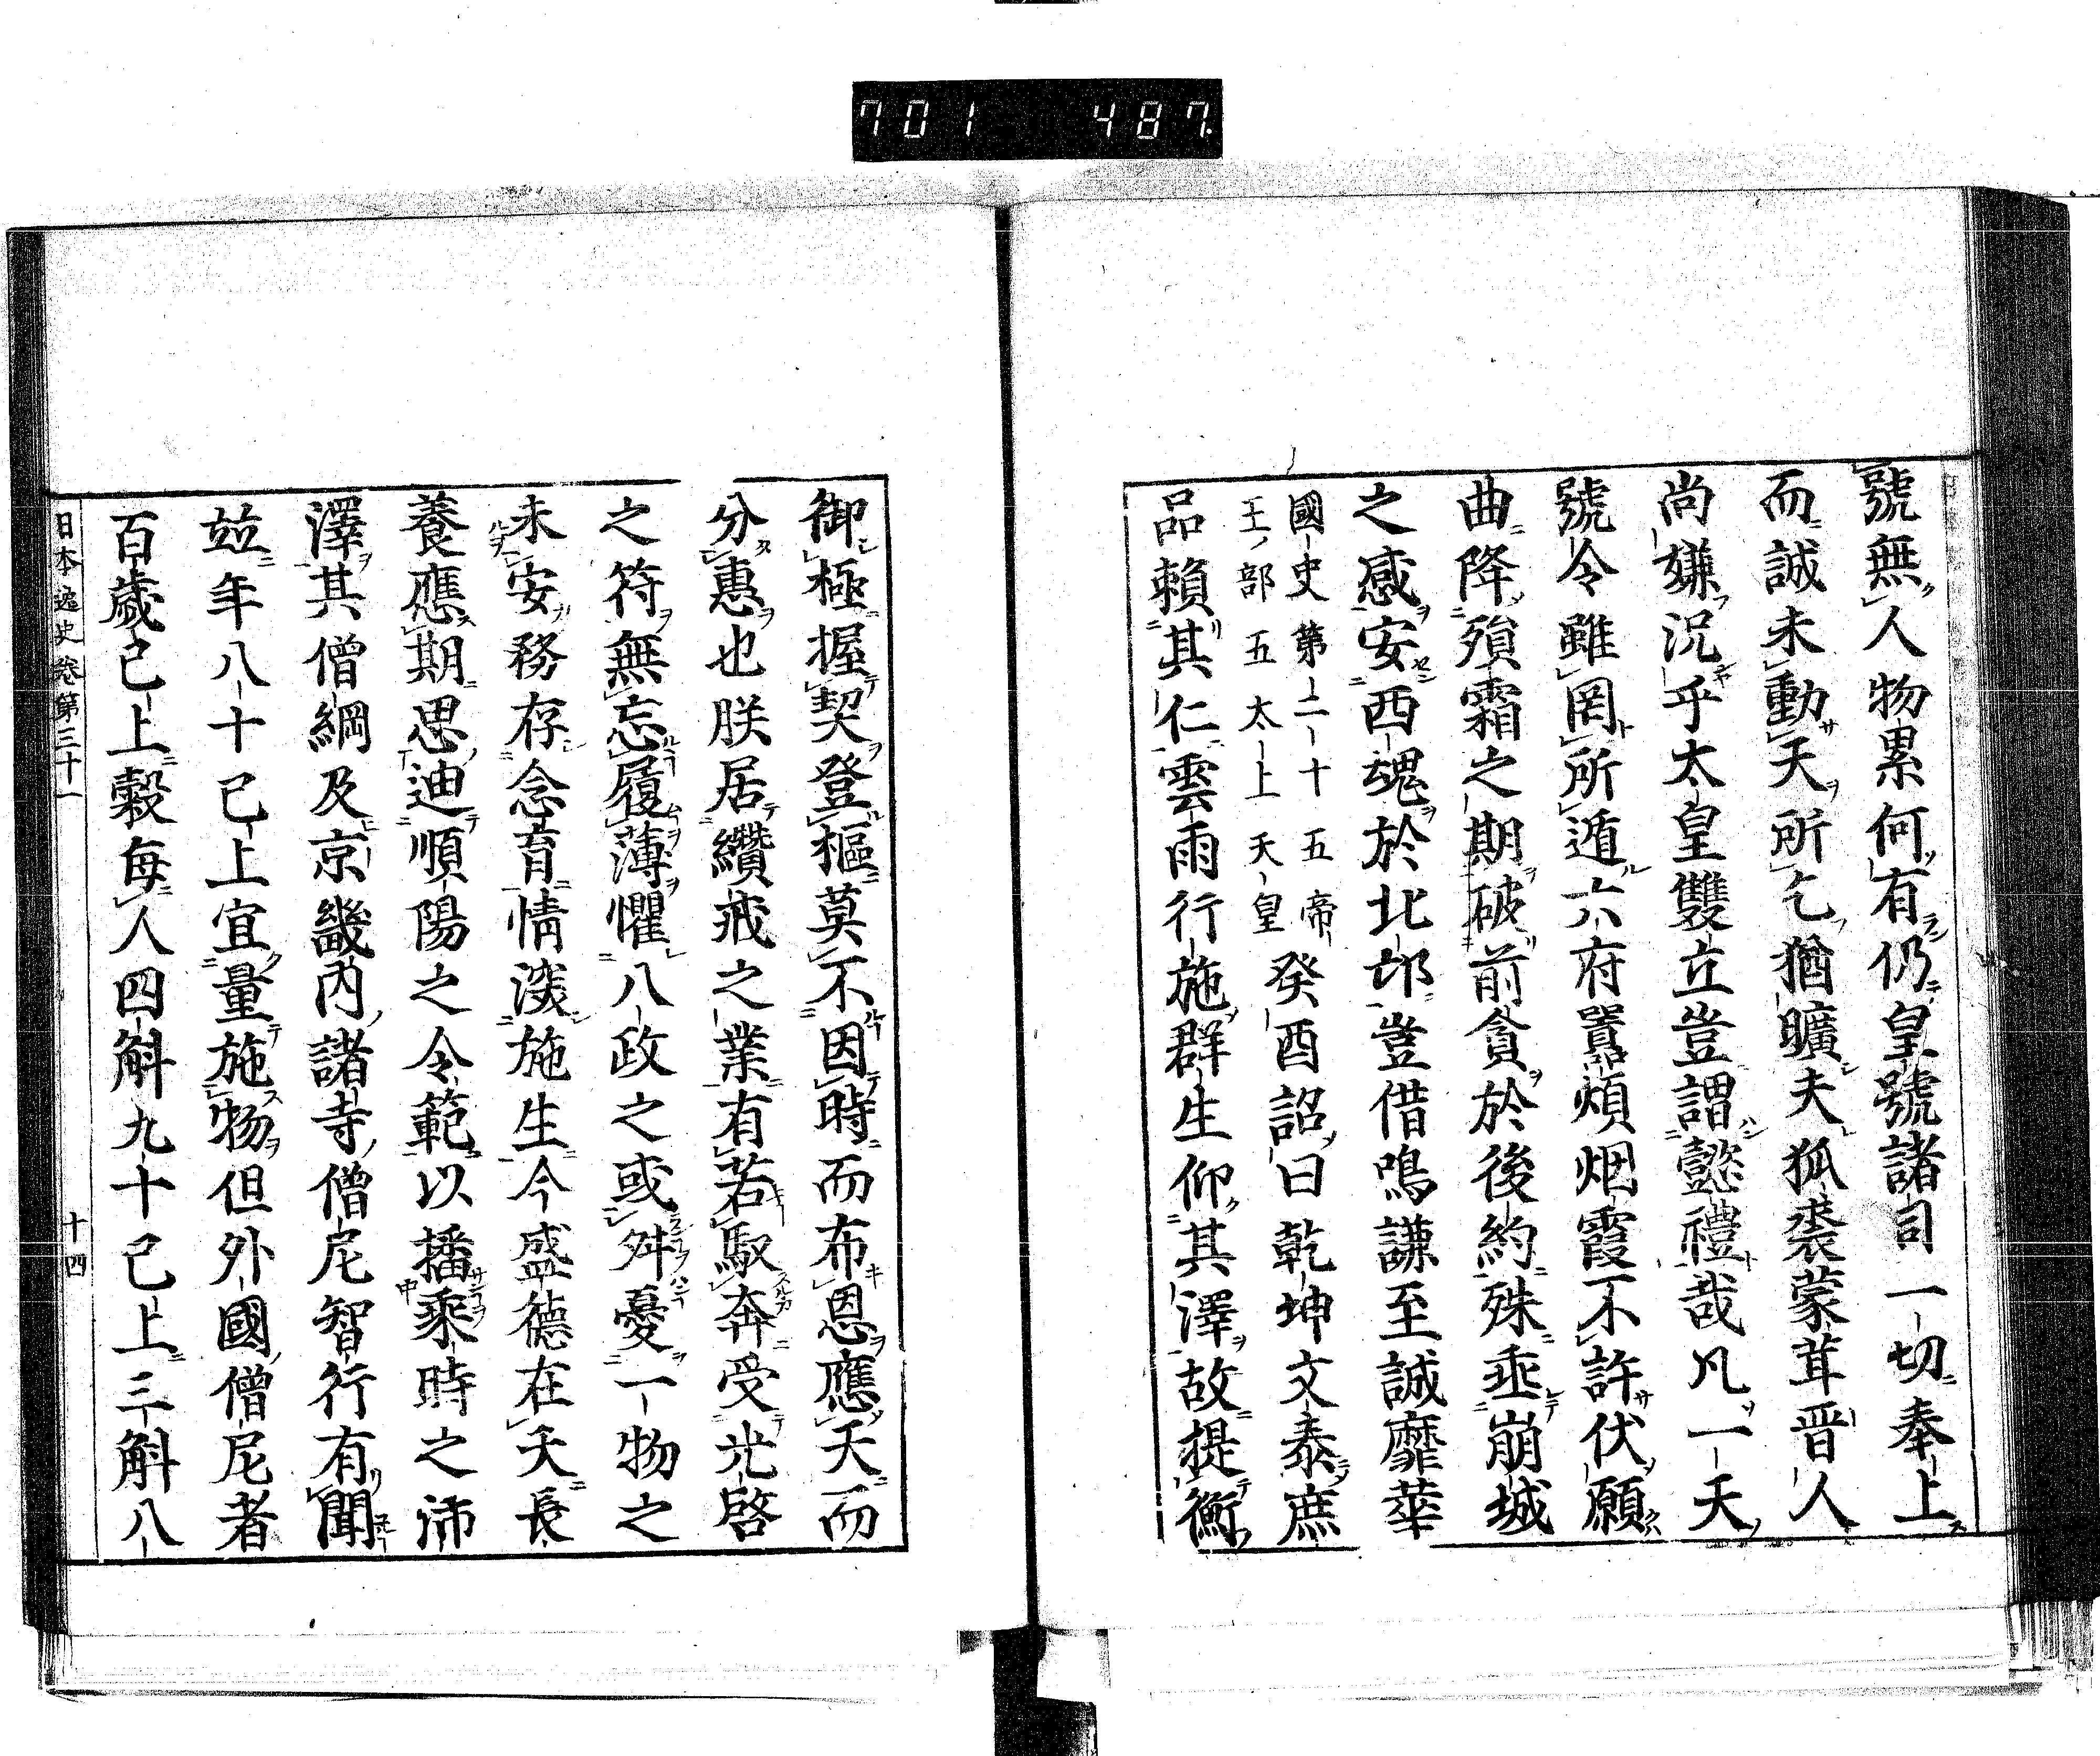 701 487
號無人物累何有仍皇號諸司一切奉上
而誠未動天所乞猶曠夫狐裘蒙茸晋人
尚嫌况乎太皇雙立豈謂懿禮哉凡一天
號令雖罔所遁六府囂煩烟霞不許伏願
曲降殞霜之期破前貪於後約殊垂崩城
之感安西魂於北邙豈借鳴謙至誠靡華
國史第二十五帝
王ノ部五太上天皇
癸酉詔曰乾坤文泰庶
品頼其仁雲雨行施群生仰其澤故提衡
御極握契登樞莫不因時而布恩應天而
分惠也朕居纘戎之業有若馭奔受光啓
之符無忘履薄懼八政之或舛憂一物之
未安務存念育情深施生今盛德在夭長
養應期思迪順陽之令範以播乘時之沛
澤其僧綱及京畿内諸寺僧尼智行有聞
竝年八十已上宜量施物但外國僧尼者
百歳已上穀毎人四斛九十已上三斛八
日本逸史卷第三十一
十四